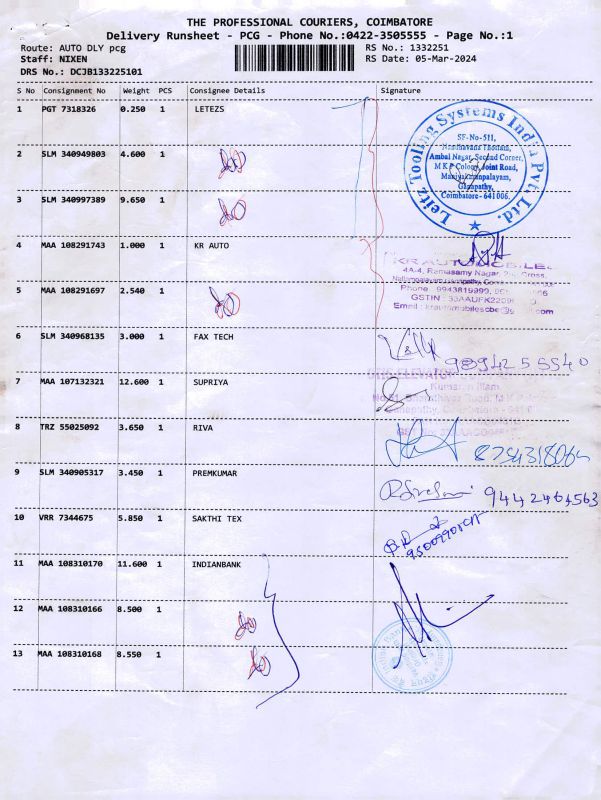 THE PROFESSIONAL COURIERS, COIMBATORE
Delivery Runsheet - PCG - Phone No.:0422-3505555 - Page No.:1
Route: AUTO DLY pcg RS No.: 1332251
Staff: NIXEN RS Date: 05-Mar-2024
DRS No.: DCJB133225101
S No Consignment No Weight PCS Consignee Details Signature
1 PGT 7318326 0.250 1 LETEZS
Leitz Tooling Systems India Pvt. Ltd.
SF-No-511,
Nanthavana Thottam,
Ambal Nagar, Second Corner,
M K P Colony, Joint Road,
Maniyakaranpalayam,
Ganapathy,
Coimbatore - 641006.
2 SLM 340949803 4.600 1
do
3 SLM 340997389 9.650 1
do
4 MAA 108291743 1.000 1 KR AUTO
KR AUTOMOBILES
4A-4, Ramasamy Nagar, Cross,
Phone : 9943819999,
GSTIN : 33AAUFK2209
Email : krautomobilescbe@gmail.com
5 MAA 108291697 2.540 1
do
6 SLM 340968135 3.000 1 FAX TECH
9894255540
7 MAA 107132321 12.600 1 SUPRIYA
8 TRZ 55025092 3.650 1 RIVA
9 SLM 340905317 3.450 1 PREMKUMAR
9442464563
10 VRR 7344675 5.850 1 SAKTHI TEX
11 MAA 108310170 11.600 1 INDIANBANK
12 MAA 108310166 8.500 1
do
13 MAA 108310168 8.550 1
do